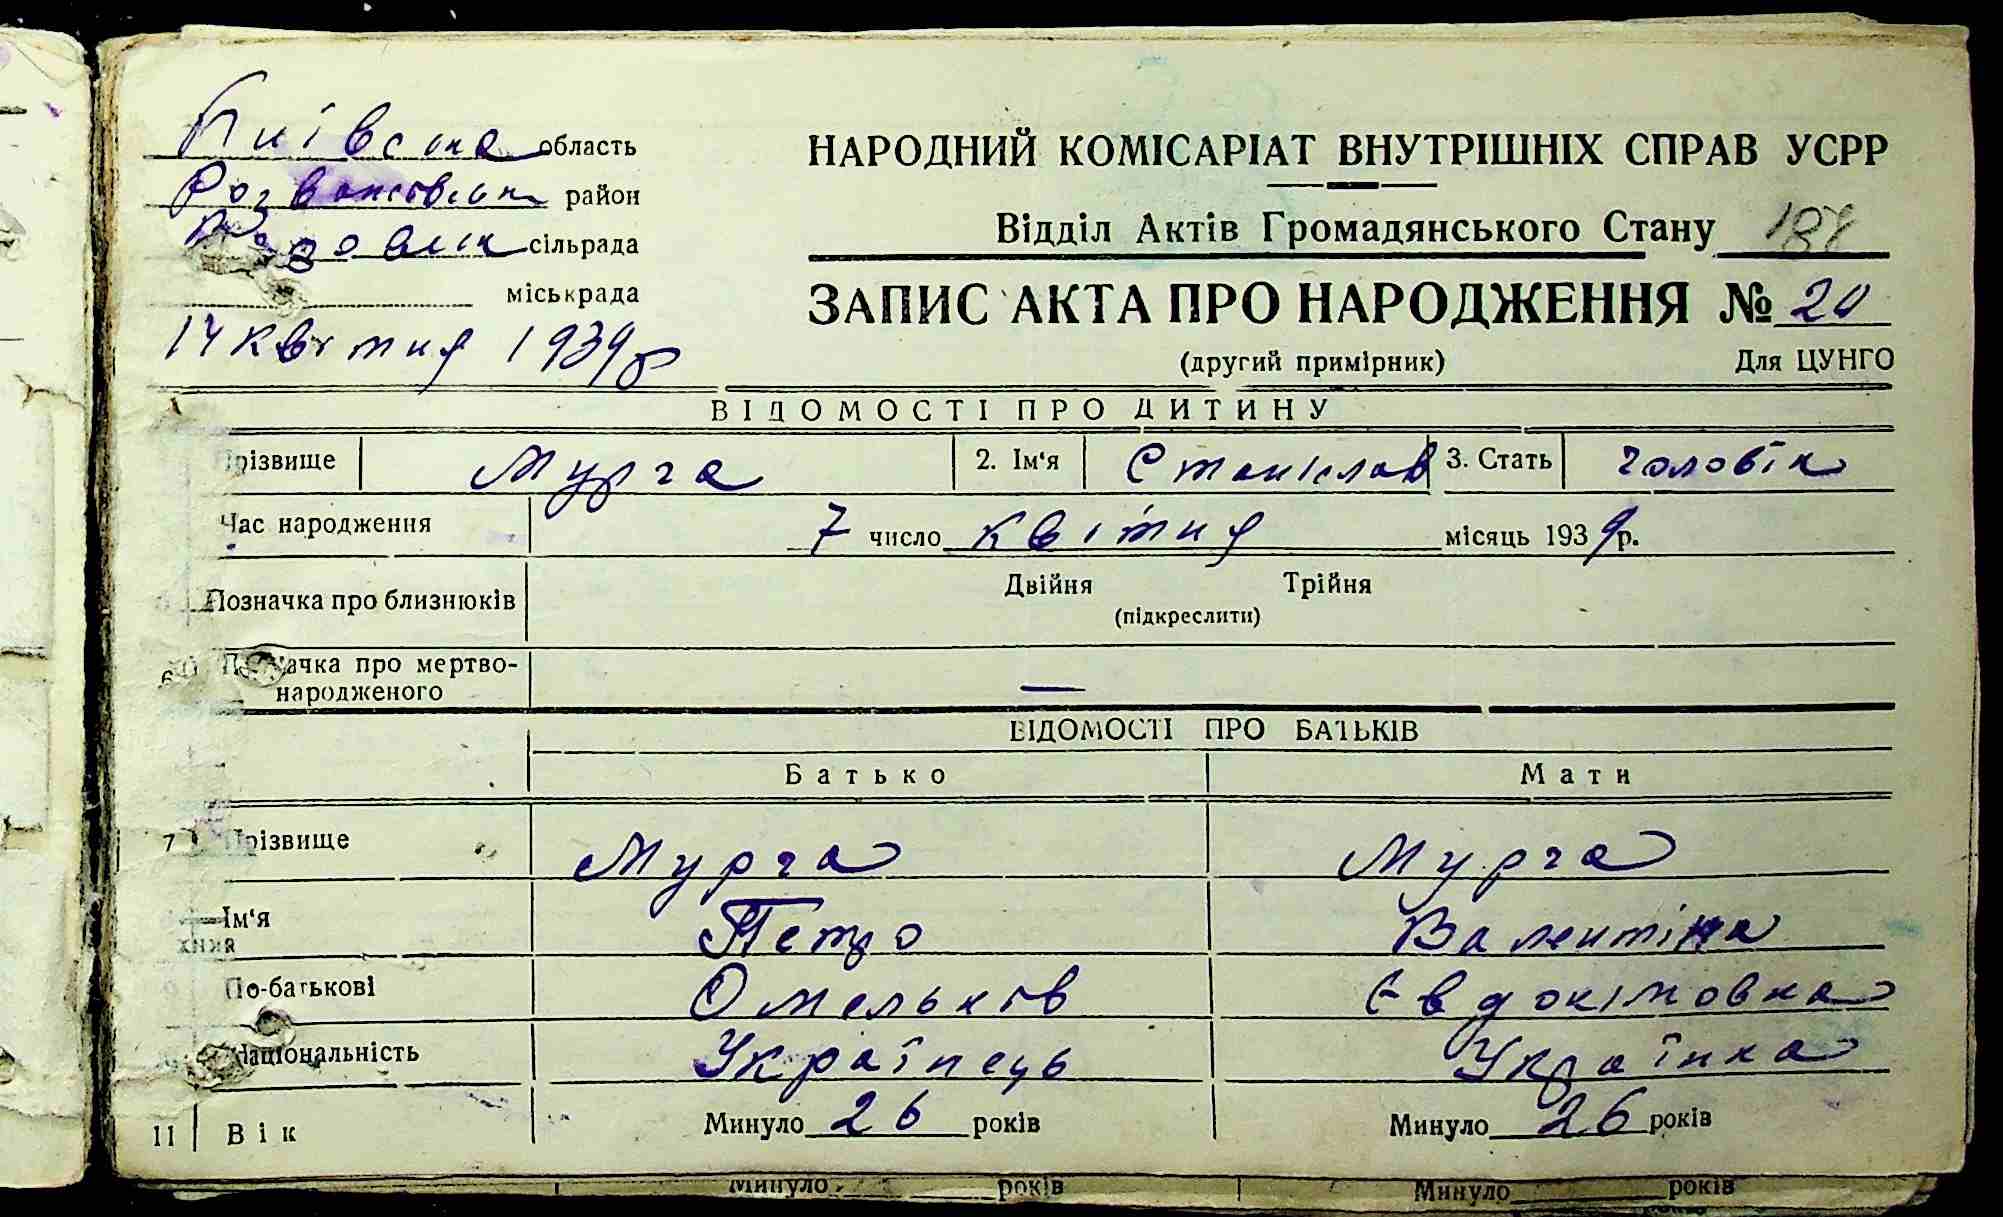 Київська область
Розважівськ район
сільрада
міськрада
14 квітня 1939 р
НАРОДНИЙ КОМІСАРІАТ ВНУТРІШНІХ СПРАВ УСРР
Відділ Актів Громадянського Стану
ЗАПИС АКТА ПРО НАРОДЖЕННЯ № 20
(другий примірник) Для ЦУНГО
ВІДОМОСТІ ПРО ДИТИНУ
Прізвище Мурга 2. Ім'я Станіслав 3. Стать чоловік
Час народження 7 число квітня місяць 1939 р.
Позначка про близнюків Двійня Трійня
(підкреслити)
6 Позначка про мертво-
народженого —
ВІДОМОСТІ ПРО БАТЬКІВ
Батько Мати
7 Прізвище Мурга Мурга
Ім'я Петро Валентіна
По-батькові Омельків Євдокімовна
Національність Українець Українка
11 Вік Минуло 26 років Минуло 26 років
Минуло років Минуло років